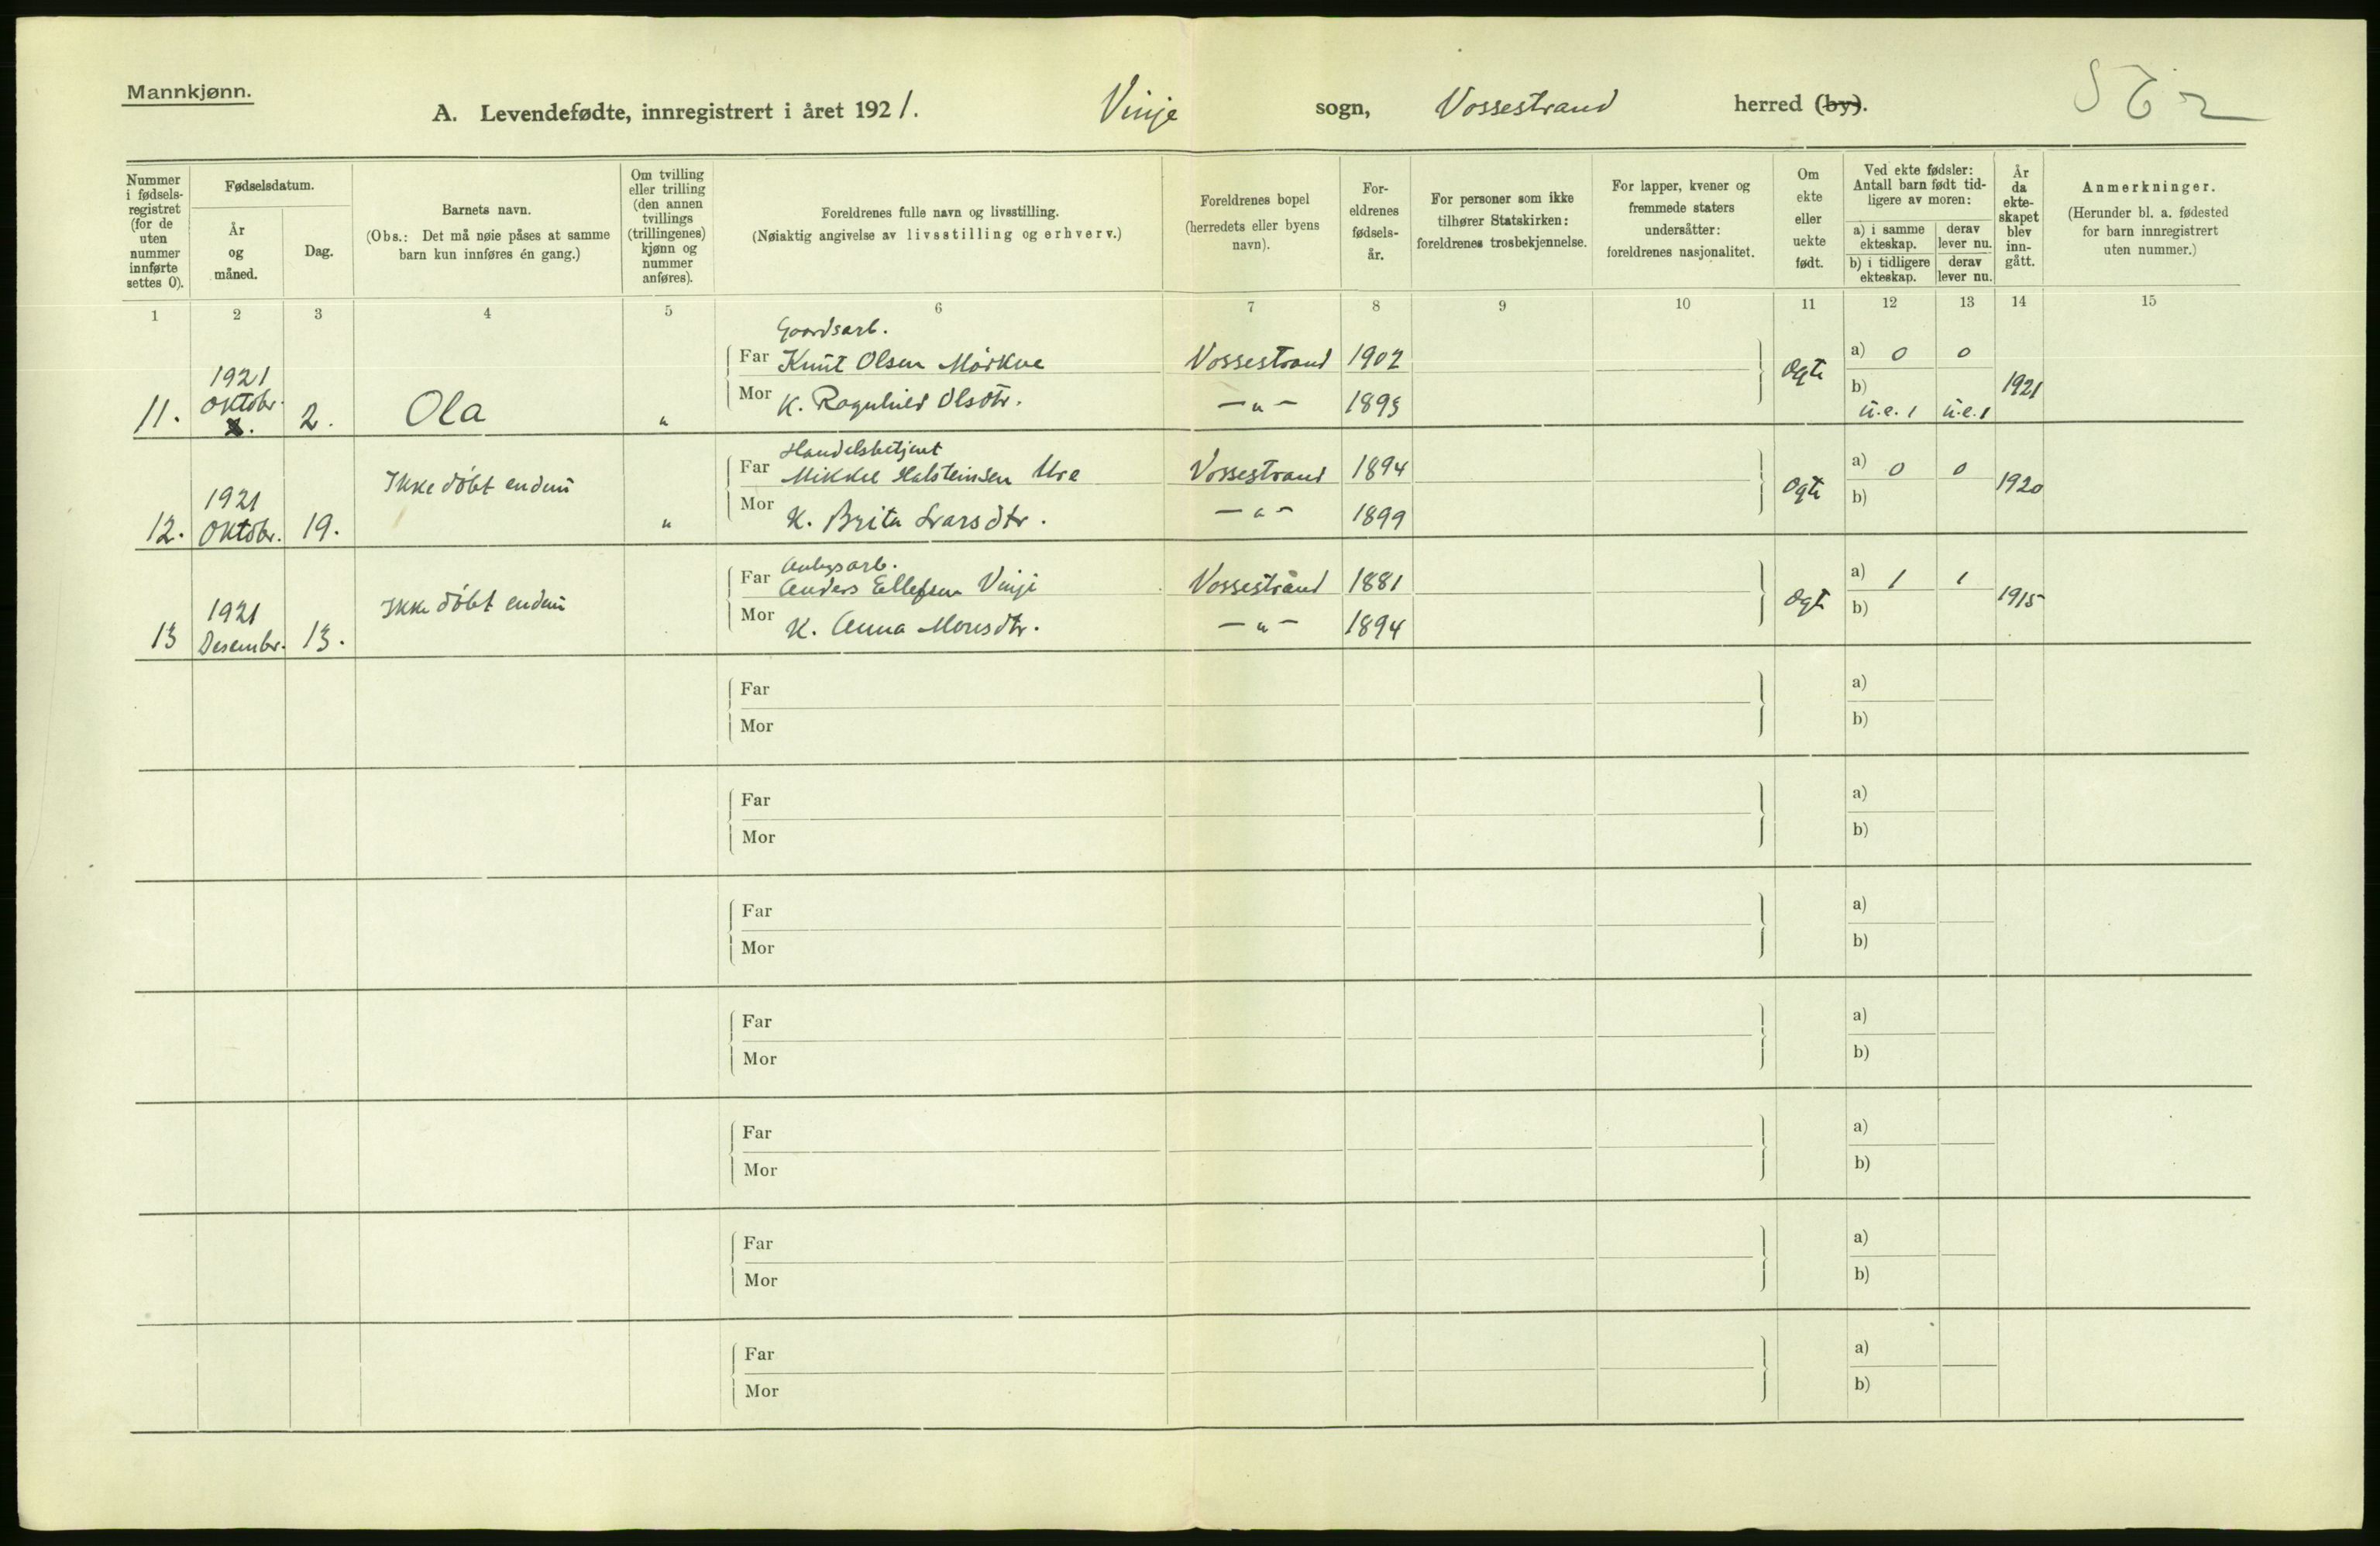 Mannkjønn.
A. Levendefødte, innregistrert i året 1921. Vinje sogn, Vossestrand herred (by).
Nummer i fødsels-registret (for de uten nummer innførte settes 0).
Fødselsdatum.
År og måned.
Dag.
Barnets navn.
(Obs.: Det må nøie påses at samme barn kun innføres én gang.)
Om tvilling eller trilling (den annen tvillings (trillingenes) kjønn og nummer anføres).
Foreldrenes fulle navn og livsstilling.
(Nøiaktig angivelse av livsstilling og erhverv.)
Foreldrenes bopel (herredets eller byens navn).
For-eldrenes fødsels-år.
For personer som ikke tilhører Statskirken: foreldrenes trosbekjennelse.
For lapper, kvener og fremmede staters undersåtter: foreldrenes nasjonalitet.
Om ekte eller uekte født.
Ved ekte fødsler: Antall barn født tid-ligere av moren:
a) i samme ekteskap. derav lever nu.
b) i tidligere ekteskap. derav lever nu.
År da ekte-skapet blev inn-gått.
Anmerkninger.
(Herunder bl. a. fødested for barn innregistrert uten nummer.)
1 2 3 4 5 6 7 8 9 10 11 12 13 14 15
Gaardsarb.
Far Knut Olsen Mørkve Vossestrand 1902 a) 0 0
1921 Ogte 1921
11. Oktobr. 2. Ola " Mor K. Ragnhild Olsdtr. — " — 1893 b) u.e. 1 u.e. 1
Handelsbetjent
Far Mikkel Halsteinsen Ure Vossestrand 1894 a) 0 0
Ikke døbt endnu
1921 Ogte 1920
12. Oktobr. 19. " Mor K. Brita Larsdtr. — " — 1899 b)
Anlegsarb.
Far Anders Ellefsen Vinje Vossestrand 1881 a) 1 1
Ikke døbt endnu
1921 Ogte 1915
13 Desembr. 13. Mor K. Anna Monsdtr. — " — 1894 b)
Far a)
Mor b)
Far a)
Mor b)
Far a)
Mor b)
Far a)
Mor b)
Far a)
Mor b)
Far a)
Mor b)
Far a)
Mor b)